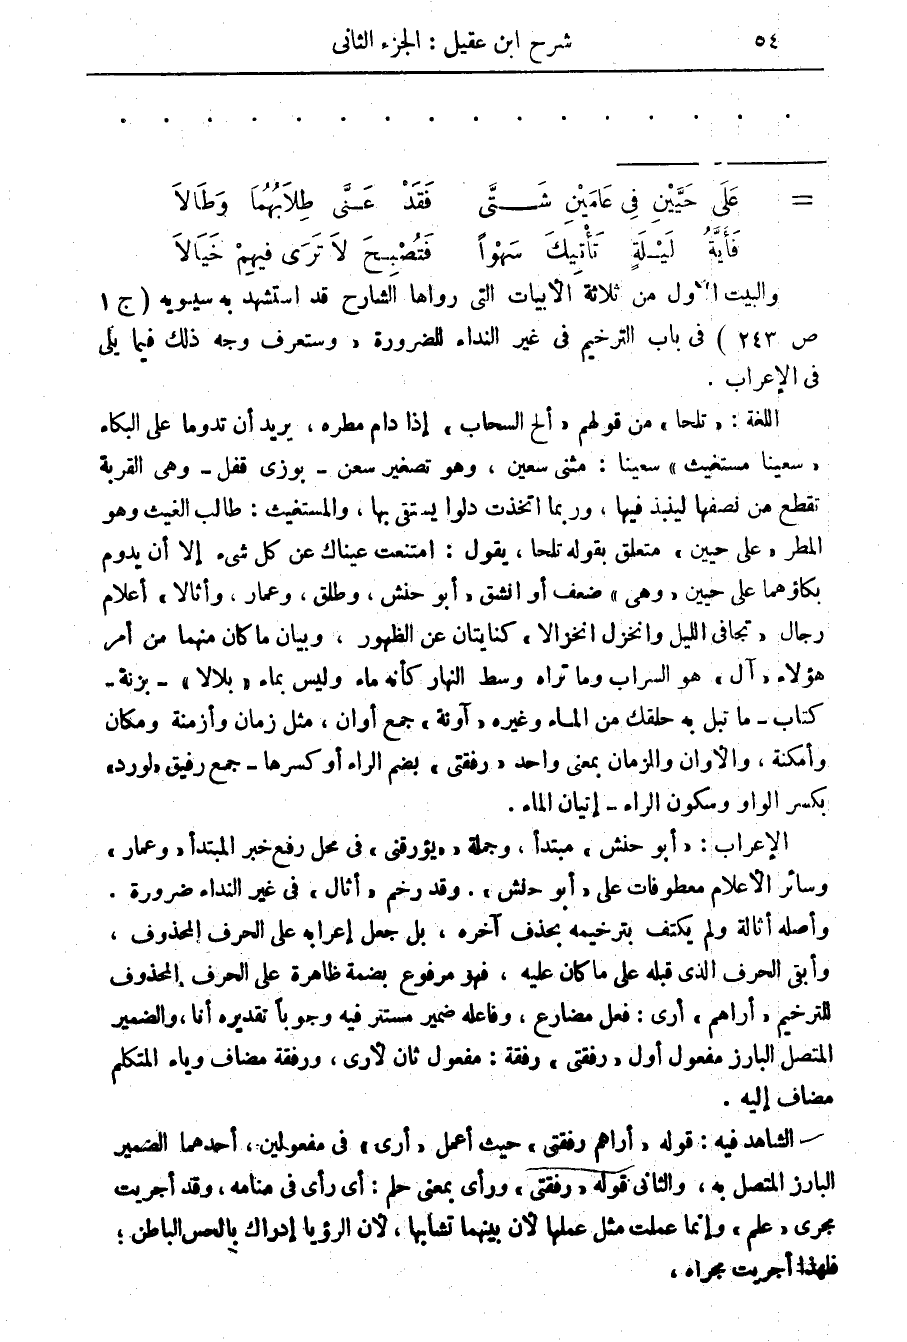 ٥٤ شرح ابن عقيل : الجزء الثانى
. . . . . . . . . . . . . . . .
= عَلَى حَيَّيْنِ فِى عَامَيْنِ شَـــتَّى فَقَدْ عَـنَّى طِلاَبُهُمَا وَطَالاَ
فَأَيَّةُ لَيْـلَةٍ تَأْتِيكَ سَهْواً فَتُصْبِـحَ لاَ تَرَى فِيهِمْ خَيَالاَ
والبيت الأول من ثلاثة الأبيات التى رواها الشارح قد استشهد به سيبويه ( ج ١
ص ٢٤٣ ) فى باب الترخيم فى غير النداء للضرورة ، وستعرف وجه ذلك فيما يلى
فى الإعراب .
اللغة : « تلحا » من قولهم « ألح السحاب » إذا دام مطره ، يريد أن تدوما على البكاء
« سعينا مستغيث » سعينا : مثنى سعين ، وهو تصغير سعن ــ بوزى قفل ــ وهى القربة
تقطع من نصفها لينبذ فيها ، وربما اتخذت دلوا يستقى بها ، والمستغيث : طالب الغيث وهو
المطر « على حيين » متعلق بقوله تلحا ، يقول : امتنعت عيناك عن كل شىء إلا أن يدوم
بكاؤهما على حيين « وهى » ضعف أو انشق « أبو حنش ، وطلق ، وعمار ، وأثالا » أعلام
رجال « تجافى الليل وانخزل انخزالا » كنايتان عن الظهور ، وبيان ما كان منهما من أمر
هؤلاء « آل » هو السراب وما تراه وسط النهار كأنه ماء وليس بماء « بلالا » ــ بزنة ــ
كتاب ــ ما تبل به حلقك من الماء وغيره « آونة » جمع أوان ، مثل زمان وأزمنة ومكان
وأمكنة ، والأوان والزمان بمعنى واحد « رفقتى » بضم الراء أو كسرها ــ جمع رفيق «لورد»
بكسر الواو وسكون الراء ــ إتيان الماء .
الإعراب : « أبو حنش » مبتدأ ، وجملة « يؤرقنى » فى محل رفع خبر المبتدأ « وعمار »
وسائر الأعلام معطوفات على « أبو حنش » . وقد رخم « أثال » فى غير النداء ضرورة .
وأصله أثالة ولم يكتف بترخيمه بحذف آخره ، بل جعل إعرابه على الحرف المحذوف ،
وأبقى الحرف الذى قبله على ما كان عليه ، فهو مرفوع بضمة ظاهرة على الحرف المحذوف
للترخيم « أراهم » أرى : فعل مضارع ، وفاعله ضمير مستتر فيه وجوباً تقديره أنا ، والضمير
المتصل البارز مفعول أول « رفقتى » رفقة : مفعول ثان لأرى ، ورفقة مضاف وياء المتكلم
مضاف إليه .
الشاهد فيه : قوله « أراهم رفقتى » حيث أعمل « أرى » فى مفعولين ، أحدهما الضمير
البارز المتصل به ، والثانى قوله « رفقتى » ورأى بمعنى حلم : أى رأى فى منامه ، وقد أجريت
مجرى « علم » وإنما عملت مثل عملها لأن بينهما تشابها ، لأن الرؤيا إدراك بالحس الباطن ؛
فلهذا أجريت مجراه ،